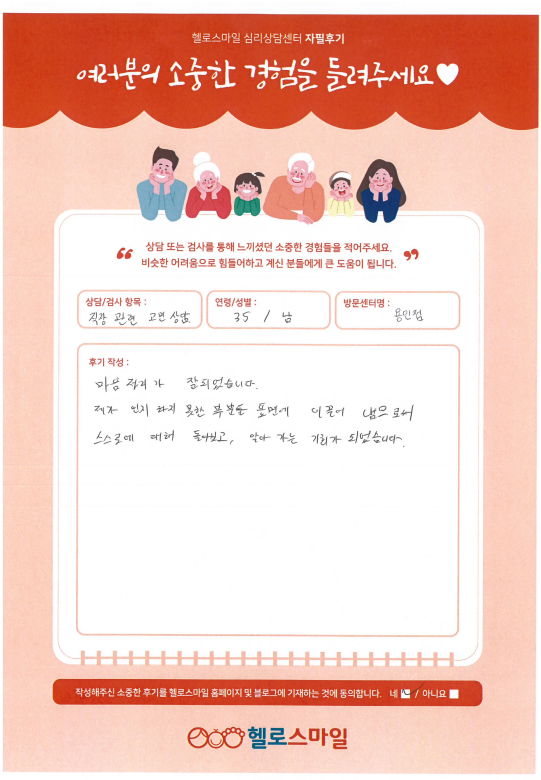 헬로스마일 심리상담센터 자필후기
여러분의 소중한 경험을 들려주세요
상담 또는 검사를 통해 느끼셨던 소중한 경험들을 적어주세요.
비슷한 어려움으로 힘들어하고 계신 분들에게 큰 도움이 됩니다.
상담/검사 항목 :
직장 관련 고민 상담
연령/성별 :
35 / 남
방문센터명 :
용인점
후기 작성 :
마음 정리가 잘되었습니다.
제가 인지 하지 못한 부분들 표면에 이끌어 냄으로써
스스로에 대해 돌아보고, 알아 가는 기회가 되었습니다.
작성해주신 소중한 후기를 헬로스마일 홈페이지 및 블로그에 기재하는 것에 동의합니다. 네 / 아니요
헬로스마일